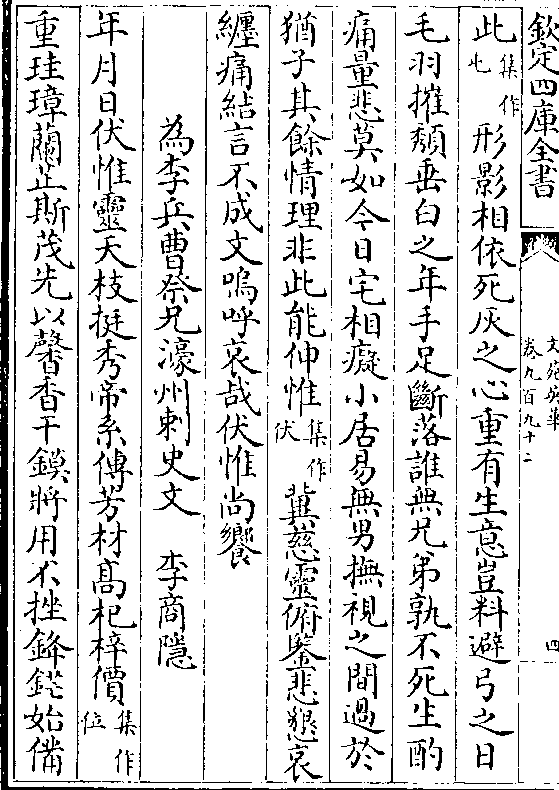 欽定四庫全書
文苑英華
卷九百九十二
四
此集作屯形影相依死灰之心重有生意豈料避弓之日
毛羽摧頹垂白之年手足斷落誰無兄弟孰不死生酌
痛量悲莫如今日宅相癡小居易無男撫視之間過於
猶子其餘情理非此能伸惟集作伏冀慈靈俯鑒悲懇哀
纏痛結言不成文嗚呼哀哉伏惟尚饗
為李兵曹祭兄濠州刺史文 李商隱
年月日伏惟靈天枝挺秀帝系傳芳材髙杞梓價集作位
重珪璋蘭芷斯茂先以馨香干鏌將用不挫鋒鋩始備